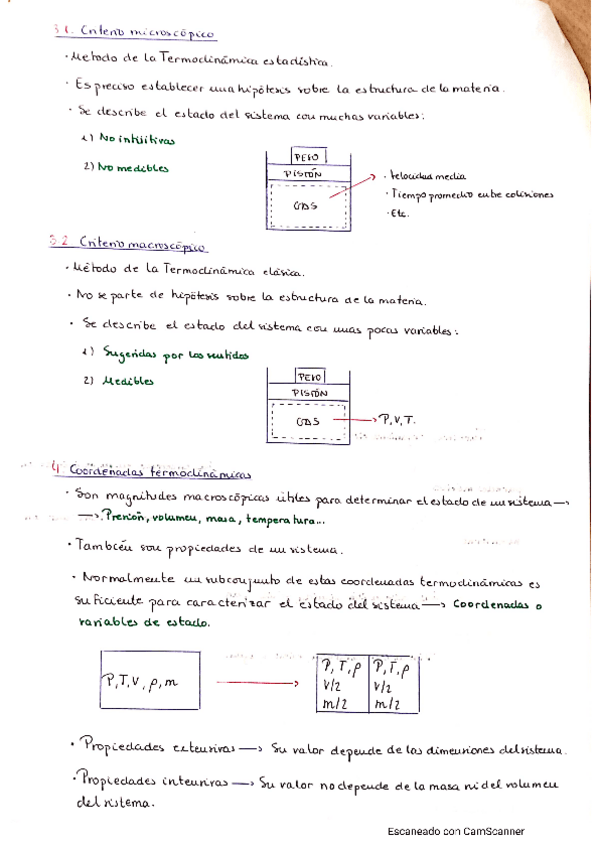 3.1. Criterio microscópico
· Método de la Termodinámica estadística.
· Es preciso establecer una hipótesis sobre la estructura de la materia.
· Se describe el estado del sistema con muchas variables:
1) No intuitivas
2) No medibles
PESO
PISTÓN
GAS
· Velocidad media
· Tiempo promedio entre colisiones
· Etc.
3.2. Criterio macroscópico
· Método de la Termodinámica clásica.
· No se parte de hipótesis sobre la estructura de la materia.
· Se describe el estado del sistema con unas pocas variables:
1) Sugeridas por los sentidos
2) Medibles
PESO
PISTÓN
GAS
P, V, T.
4. Coordenadas termodinámicas
· Son magnitudes macroscópicas útiles para determinar el estado de un sistema →
→ Presión, volumen, masa, temperatura...
· También son propiedades de un sistema.
· Normalmente un subconjunto de estas coordenadas termodinámicas es
suficiente para caracterizar el estado del sistema → Coordenadas o
variables de estado.
P, T, V, ρ, m
P, T, ρ P, T, ρ
V/2 V/2
m/2 m/2
· Propiedades extensivas → Su valor depende de las dimensiones del sistema.
· Propiedades intensivas → Su valor no depende de la masa ni del volumen
del sistema.
Escaneado con CamScanner